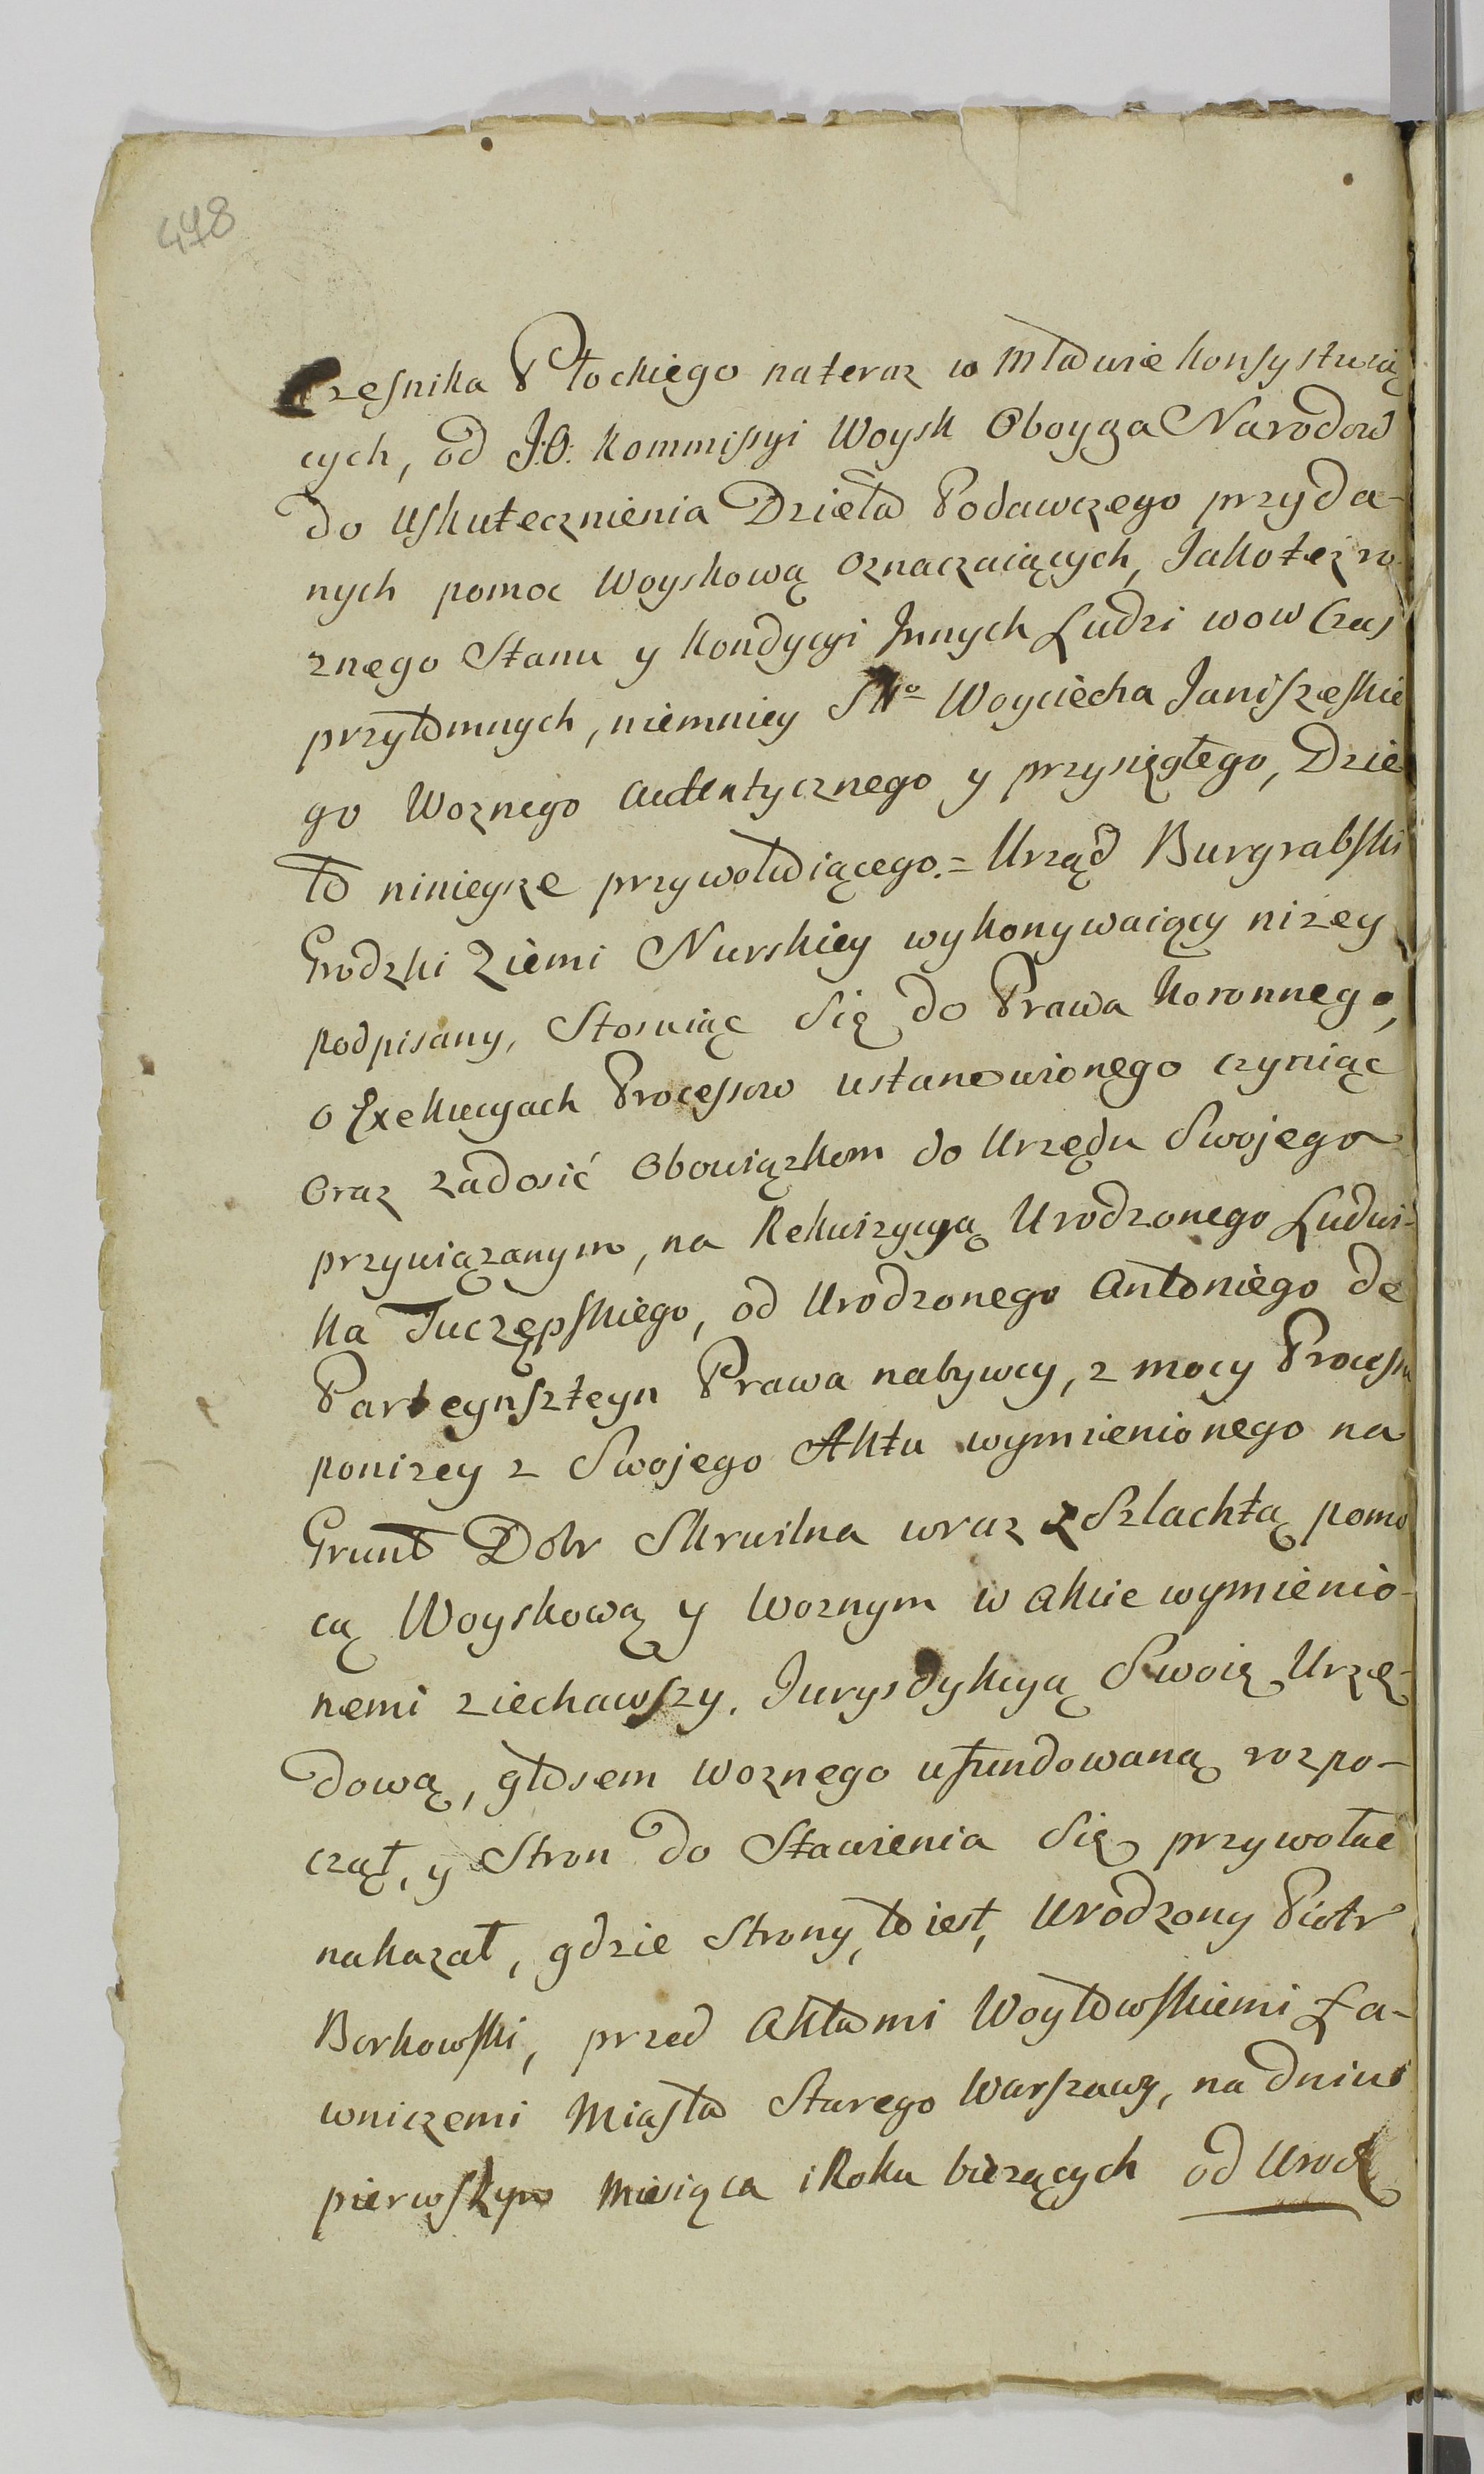 478
Czesnika Płockiego nateraz w Mławie konsystuią
cych, od J:O: Kommissyi Woysk Oboyga Narodow
do uskutecznienia Dzieła Podawczego przyda-
nych pomoc Woyskową oznaczaiących, Jakoteż ro
znego Stanu y Kondycyi Innych Ludzi wow Czas
przytomnych, niemniey Sło Woyciecha Janiszeskie
go Woznego autentycznego y przysięgłego, Dzie
ło ninieysze przywołuiącego. = Urząd Burgrabski
Grodzki Ziemi Nurskiey wykonywaiący niżey
podpisany, Stosuiąc Się do Prawa Koronnego,
o Exekucyach Processow ustanowionego czyniąc
oraz zadosić obowiązkom do Urzędu Swojego
przywiązanym, na Rekwizycyą Urodzonego Ludwi-
ka Tuczępskiego, od Urodzonego Antoniego de
Parteynszteyn Prawa nabywcy, z mocy Processu
poniżey z Swojego Aktu wymienionego na
Grunt Dobr Skrwilna wraz z Szlachtą pomo
cą Woyskową y Woznym w akcie wymienio-
nemi ziechawszy, Jurysdykcyą Swoię Urzę-
dową, głosem Woznego ufundowaną rozpo-
czął, y Stron do Stawienia Się przywołać
nakazał, gdzie Strony, to iest, Urodzony Piotr
Borkowski, przed Aktami Woytowskiemi Ła-
wniczemi Miasta Starego Warszawy, na dniu
pierwszym Miesiąca i Roku bieżących od Urodz